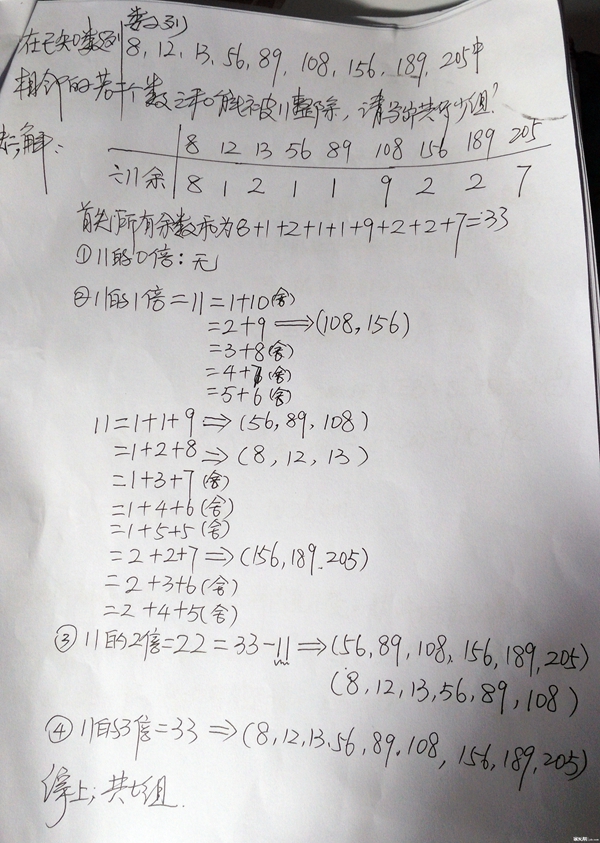 数列
在已知数列 8, 12, 13, 56, 89, 108, 156, 189, 205中
相邻的若干个数之和能被11整除，请当中共有多少组？
解：
8 12 13 56 89 108 156 189 205
÷11余 8 1 2 1 1 9 2 2 7
首先所有余数和为8+1+2+1+1+9+2+2+7=33
①11的0倍：无
②11的1倍=11=1+10(舍)
=2+9⟹(108,156)
=3+8(舍)
=4+7(舍)
=5+6(舍)
11=1+1+9⇒(56,89,108)
=1+2+8⇒(8,12,13)
=1+3+7(舍)
=1+4+6(舍)
=1+5+5(舍)
=2+2+7⇒(156,189,205)
=2+3+6(舍)
=2+4+5(舍)
③11的2倍=22=33-11⟹(56,89,108,156,189,205)
(8,12,13,56,89,108)
④11的3倍=33⇒(8,12,13,56,89,108,156,189,205)
综上；共七组.